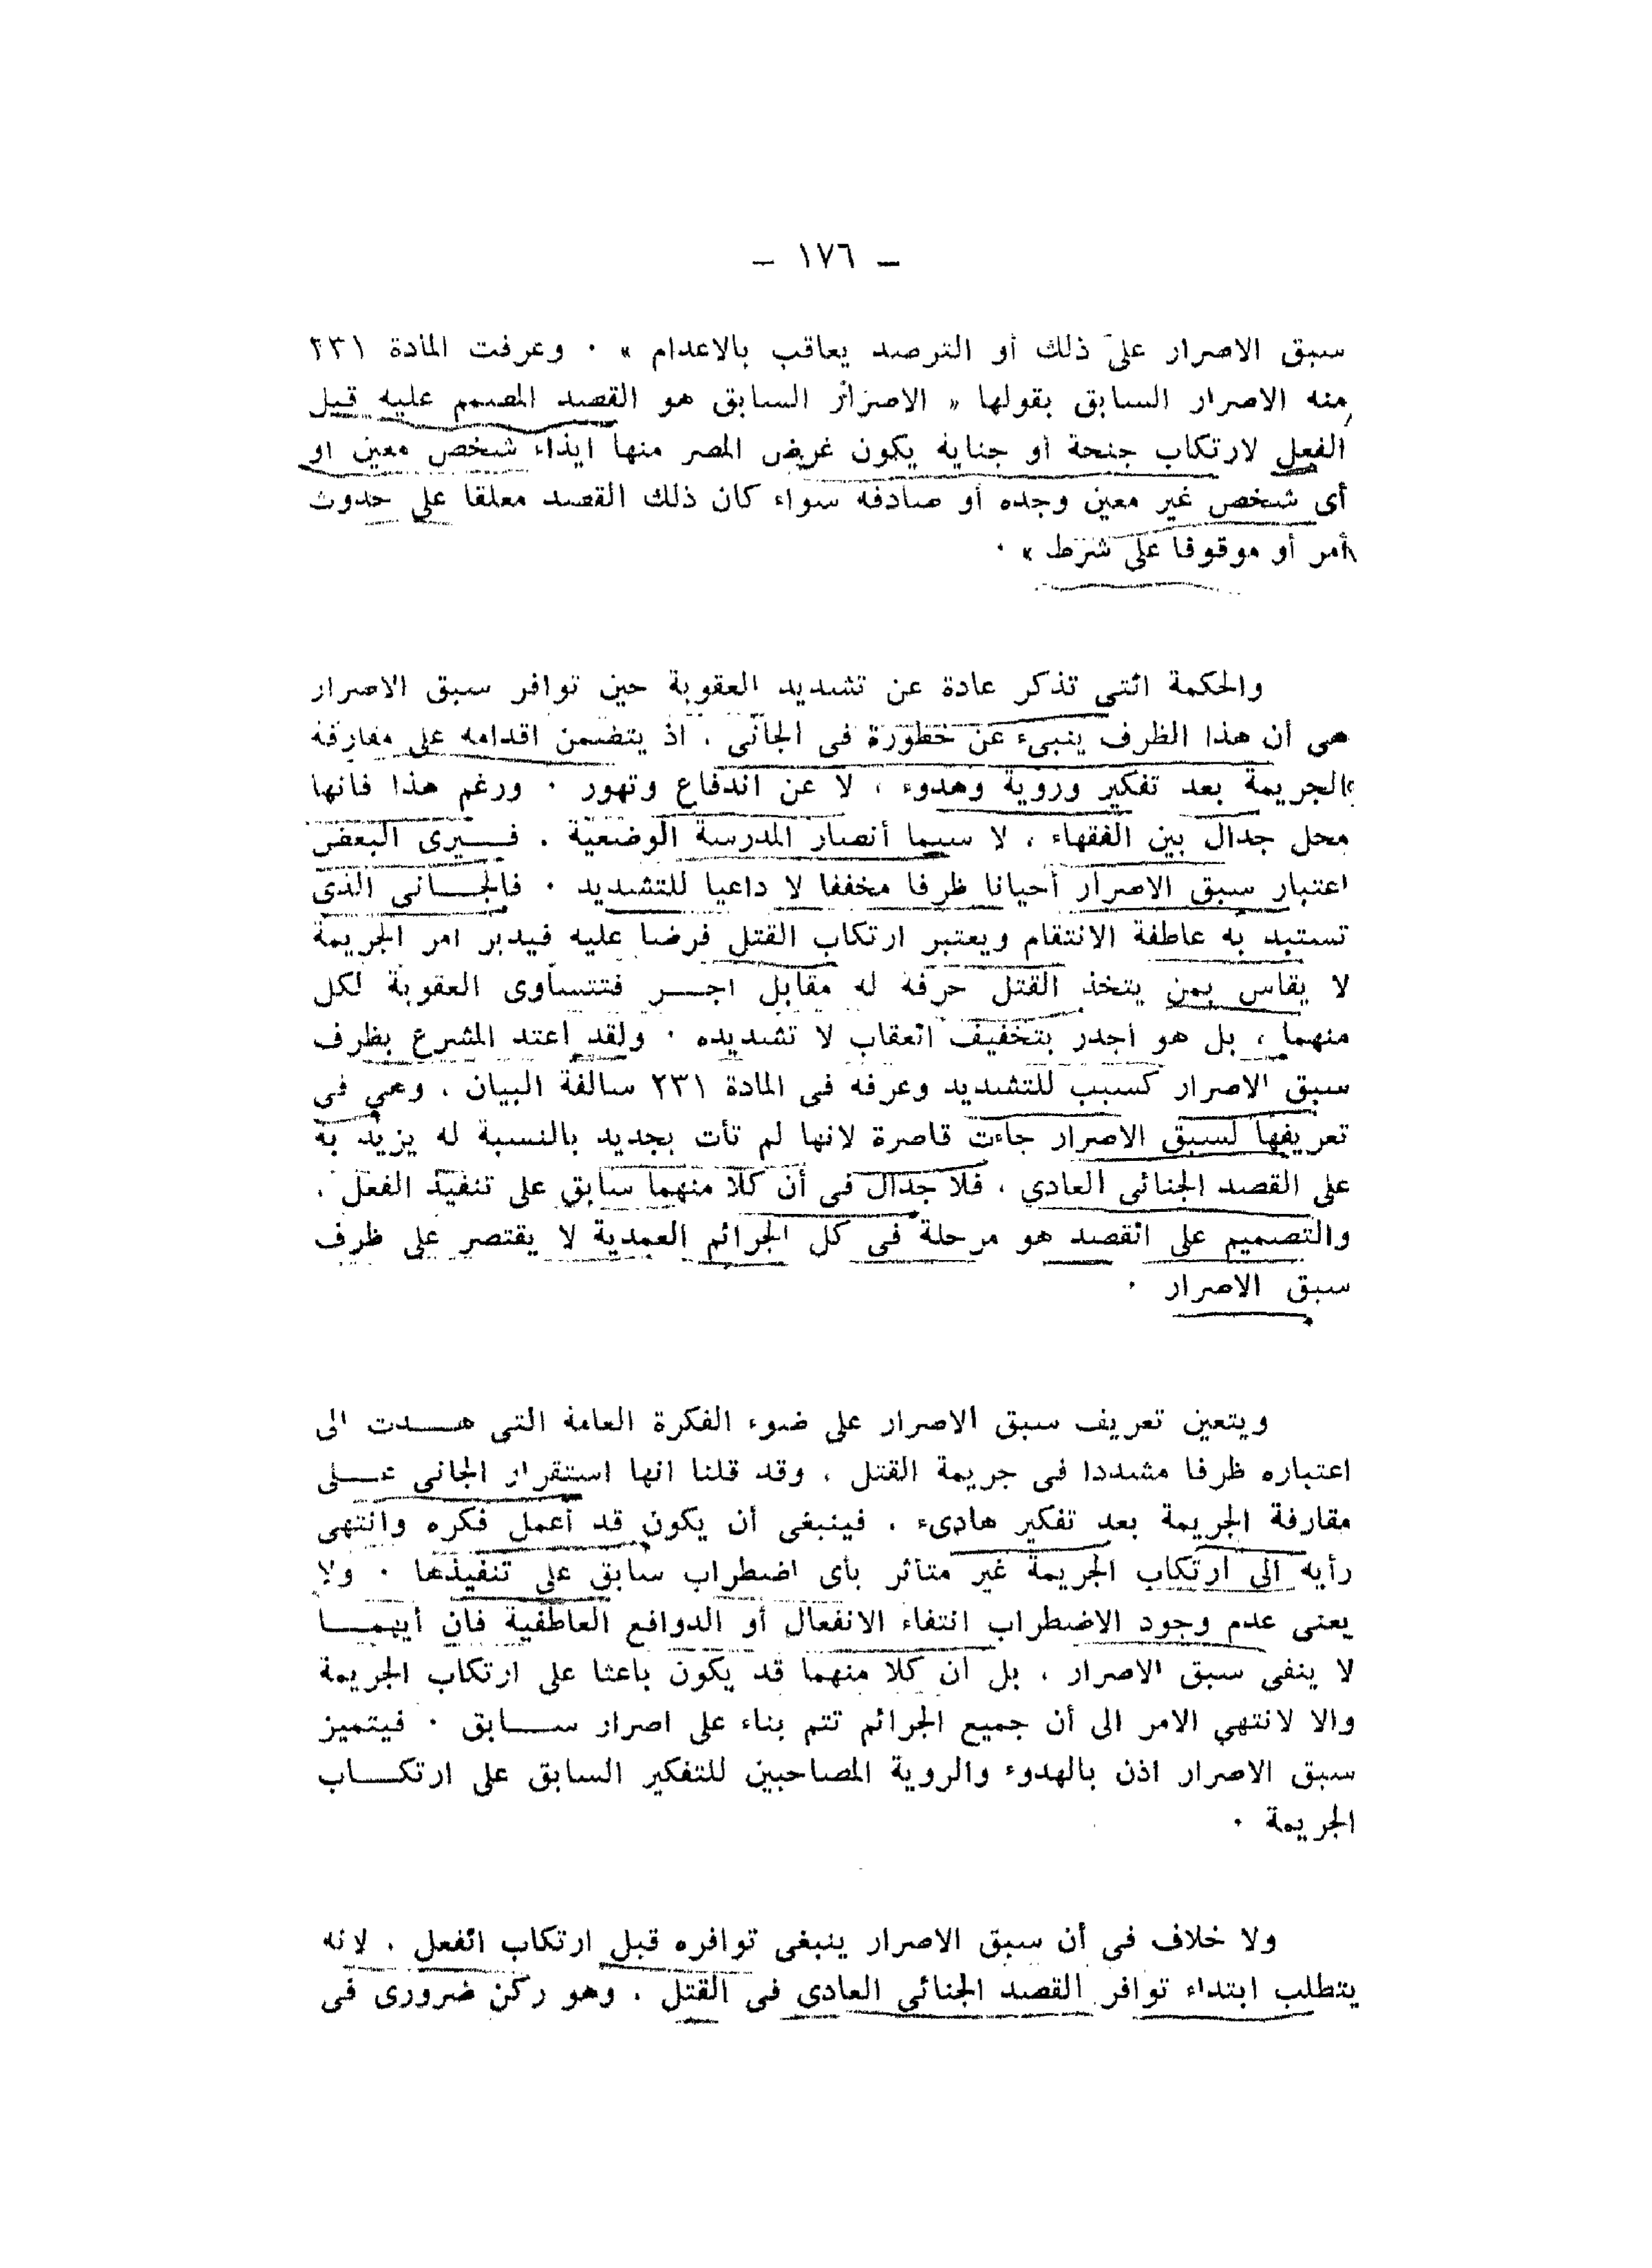 – ١٧٦ –
سبق الاصرار على ذلك أو الترصد يعاقب بالاعدام » . وعرفت المادة ٢٣١
منه الاصرار السابق بقولها « الاصرار السابق هو القصد المصمم عليه قبل
الفعل لارتكاب جنحة أو جناية يكون غرض المصر منها ايذاء شخص معين أو
أى شخص غير معين وجده أو صادفه سواء كان ذلك القصد معلقا على حدوث
أمر أو موقوفا على شرط » .
والحكمة التى تذكر عادة عن تشديد العقوبة حين توافر سبق الاصرار
هى أن هذا الظرف ينبىء عن خطورة فى الجانى ، اذ يتضمن اقدامه على مقارفة
الجريمة بعد تفكير وروية وهدوء ، لا عن اندفاع وتهور . ورغم هذا فانها
محل جدال بين الفقهاء ، لا سيما أنصار المدرسة الوضعية ، فـيرى البعض
اعتبار سبق الاصرار أحيانا ظرفا مخففا لا داعيا للتشديد . فالجـانى الذى
تستبد به عاطفة الانتقام ويعتبر ارتكاب القتل فرضا عليه فيدبر أمر الجريمة
لا يقاس بمن يتخذ القتل حرفة له مقابل أجـر فتتساوى العقوبة لكل
منهما ، بل هو أجدر بتخفيف العقاب لا تشديده . ولقد اعتد المشرع بظرف
سبق الاصرار كسبب للتشديد وعرفه فى المادة ٢٣١ سالفة البيان ، وهى فى
تعريفها لسبق الاصرار جاءت قاصرة لانها لم تأت بجديد بالنسبة له يزيد به
على القصد الجنائى العادى ، فلا جدال فى أن كلا منهما سابق على تنفيذ الفعل ،
والتصميم على القصد هو مرحلة فى كل الجرائم العمدية لا يقتصر على ظرف
سبق الاصرار .
ويتعين تعريف سبق الاصرار على ضوء الفكرة العامة التى هـدت الى
اعتباره ظرفا مشددا فى جريمة القتل ، وقد قلنا انها استقرار الجانى عـلى
مقارفة الجريمة بعد تفكير هادىء ، فينبغى أن يكون قد أعمل فكره وانتهى
رأيه الى ارتكاب الجريمة غير متأثر بأى اضطراب سابق على تنفيذها . ولا
يعنى عدم وجود الاضطراب انتفاء الانفعال أو الدوافع العاطفية فان أيهمـا
لا ينفى سبق الاصرار ، بل ان كلا منهما قد يكون باعثا على ارتكاب الجريمة
والا لانتهى الامر الى أن جميع الجرائم تتم بناء على اصرار سـابق . فيتميز
سبق الاصرار اذن بالهدوء والروية المصاحبين للتفكير السابق على ارتكـاب
الجريمة .
ولا خلاف فى أن سبق الاصرار ينبغى توافره قبل ارتكاب الفعل ، لانه
يتطلب ابتداء توافر القصد الجنائى العادى فى القتل ، وهو ركن ضرورى فى